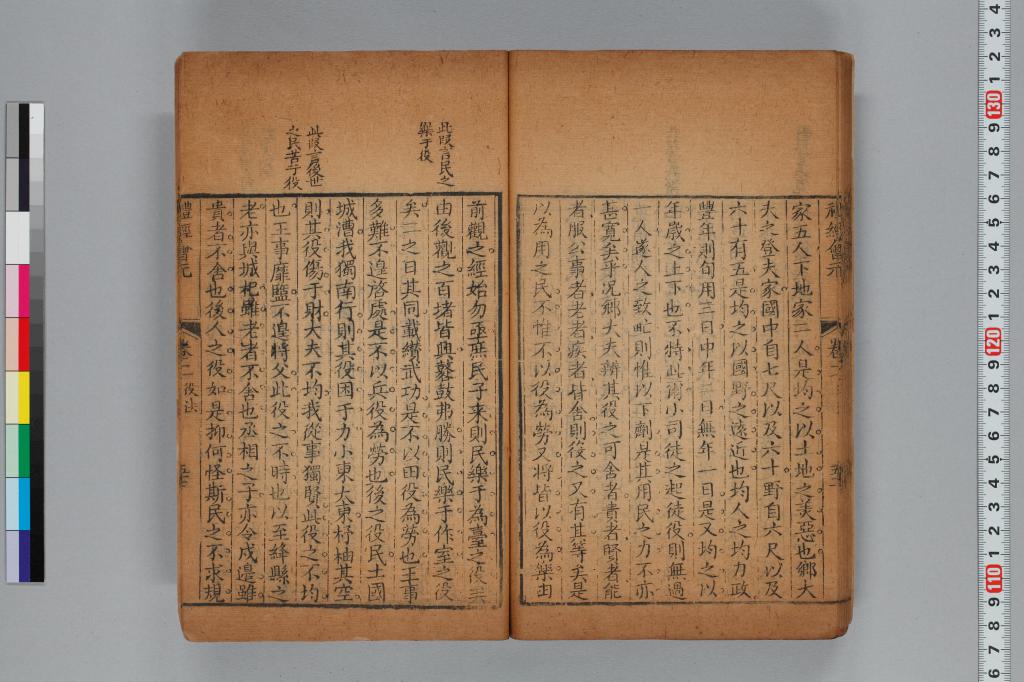 家五人下地家二人是均之以土地之美惡也鄉大
夫之登夫家國中自七尺以及六十野自六尺以及
六十有五是均之以國野之遠近也均人之均力政
豐年則旬用三日中年二日無年一日是又均之以
年歲之上下也不特此爾小司徒之起徒役則無過
一人遂人之致甿則惟以下劑是其用民之力不亦
甚寬矣乎况鄉大夫辨其役之可舍者貴者賢者能
者服公事者老者疾者皆舍則役之又有其等矣是
以為用之民不惟不以役為勞又將皆以役為樂由
此段言民之
樂于役
此段言後世
之民苦于役
前觀之經始勿亟庶民子来則民樂于為臺之役
由後觀之百堵皆興鼛鼓弗勝則民樂于作室之役
矣二之日其同載纘武功是不以田役為勞也王事
多難不遑啓處是不以兵役為勞也後之役民土國
城漕我獨南行則其役困于力小東大東杼柚其空
則其役傷于財大夫不均我從事獨賢此役之不均
也王事靡盬不遑將父此役之不時也以至絳縣之
老亦與城杞雖老者不舍也丞相之子亦令戍邊雖
貴者不舍也後人之役如是抑何怪斯民之不求規
禮經會元
卷二
役法